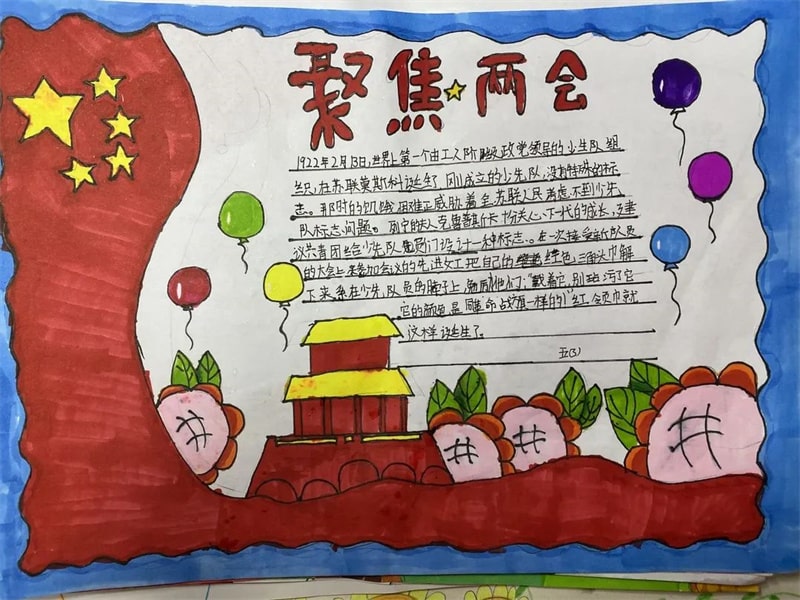 聚焦两会
1922年2月13日,世界上第一个由工人阶级政党领导的少年队组
织,在苏联莫斯科诞生了。刚成立的少先队,没有特殊的标
志。那时的饥饿困难正威胁着全苏联人民考虑不到少先
队标志问题。列宁的夫人克鲁普斯卡 十分关心下一代的成长,建
议共青团给少先队员们设计一种标志。在一次接受新队员
的大会上 参加会议的先进女工把自己的 绿色 三角头巾解
下来,系在少先队员的脖子上,勉励他们:"戴着它,别玷污了它
它的颜色是同革命战旗一样的!"红领巾就
这样诞生了。
五(3)